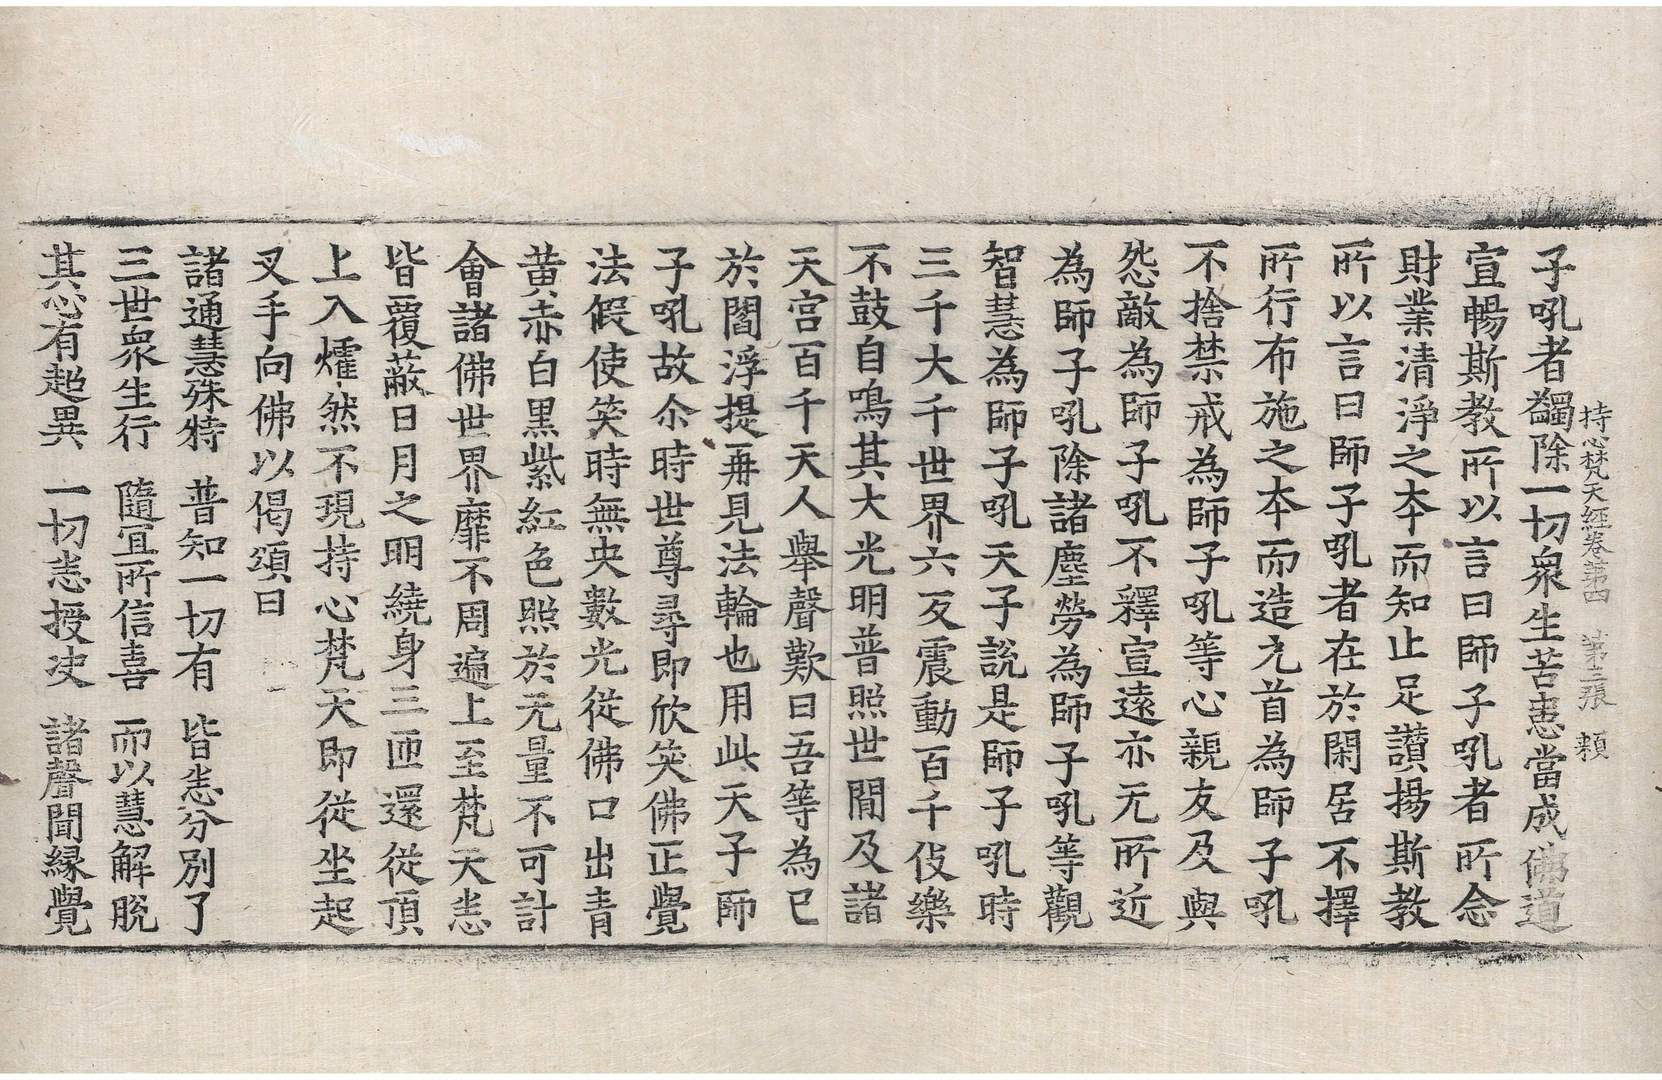 持心梵天經卷第四　第三張　賴
子吼者蠲除一切衆生苦患當成佛道
宣暢斯教所以言曰師子吼者所念
財業清淨之本而知止足讃揚斯教
所以言曰師子吼者在於閑居不擇
所行布施之本而造元首為師子吼
不捨禁戒為師子吼等心親友及與
怨敵為師子吼不釋宣遠亦无所近
為師子吼除諸塵勞為師子吼等觀
智慧為師子吼天子說是師子吼時
三千大千世界六反震動百千伎樂
不鼓自鳴其大光明普照世間及諸
天宮百千天人舉聲歎曰吾等為已
於閻浮提再見法輪也用此天子師
子吼故尒時世尊尋即欣笑佛正覺
法假使笑時無央數光從佛口出青
黃赤白黑紫紅色照於无量不可計
會諸佛世界靡不周遍上至梵天悉
皆覆蔽日月之明繞身三匝還從頂
上入爟然不現持心梵天即從坐起
叉手向佛以偈頌曰
諸通慧殊特　普知一切有　皆悉分別了
三世衆生行　隨宜所信喜　而以慧解脫
其心有超異　一切悉授決　諸聲聞縁覺